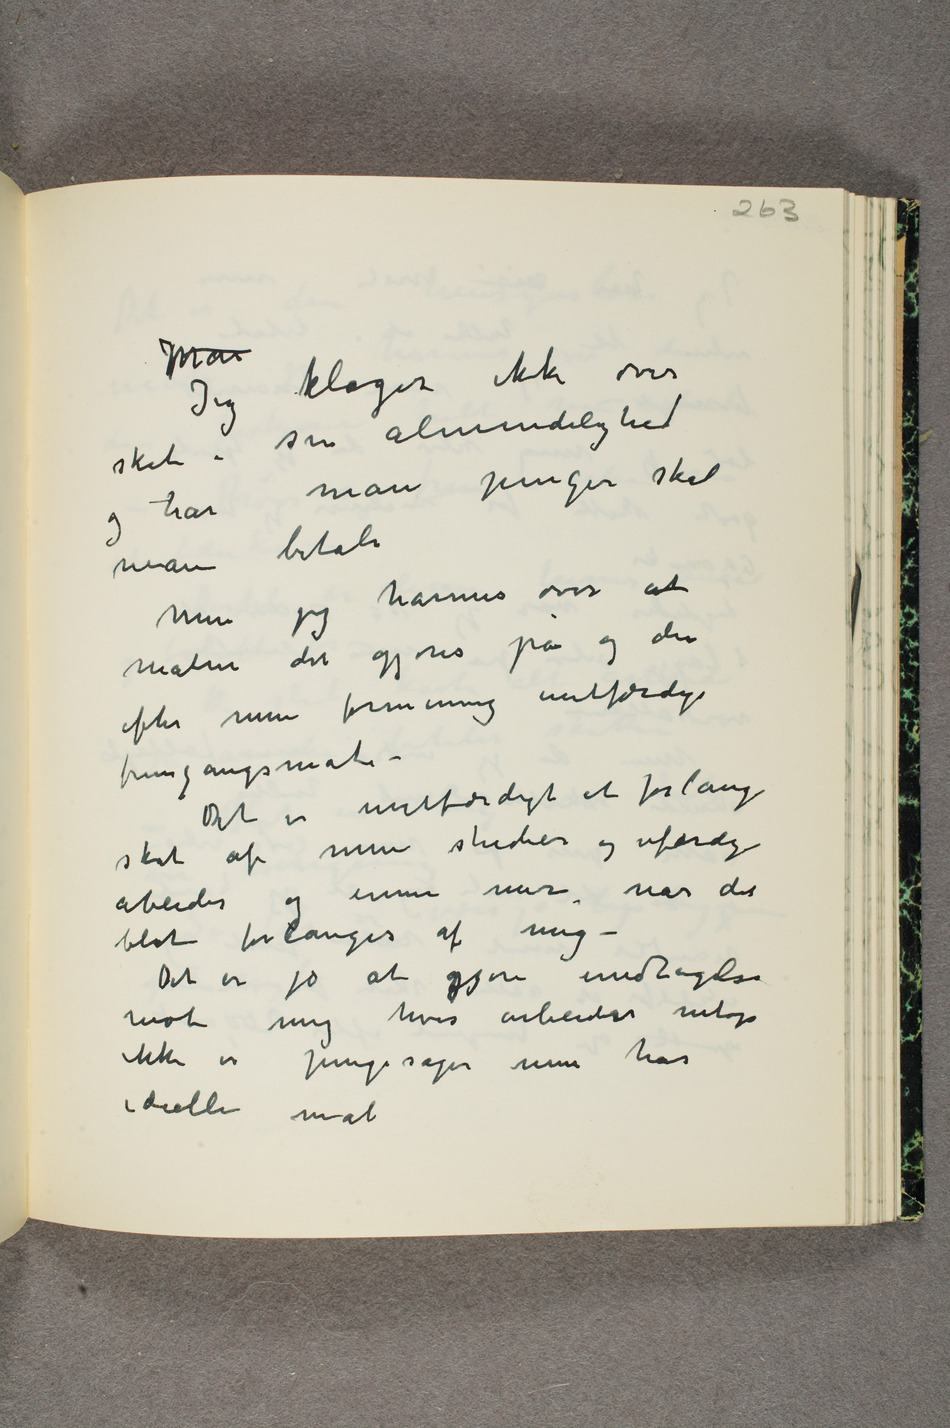 263
Man
Jeg klager ikke over
skat i sin almindelighed
og har man penger skal
man betale
Men jeg harmes over at
måten det gjøres på og den
efter min formening uretfærdige
fremgangsmåte –
Det er uretfærdigt at forlange
skat af mine studier og uferdige
arbeider og ennu mer, når det
blot forlanges af mig –
Det er jo at gjøre undtagelse
mot mig hvis arbeider netop
ikke er pengesager men har
ideelle mål